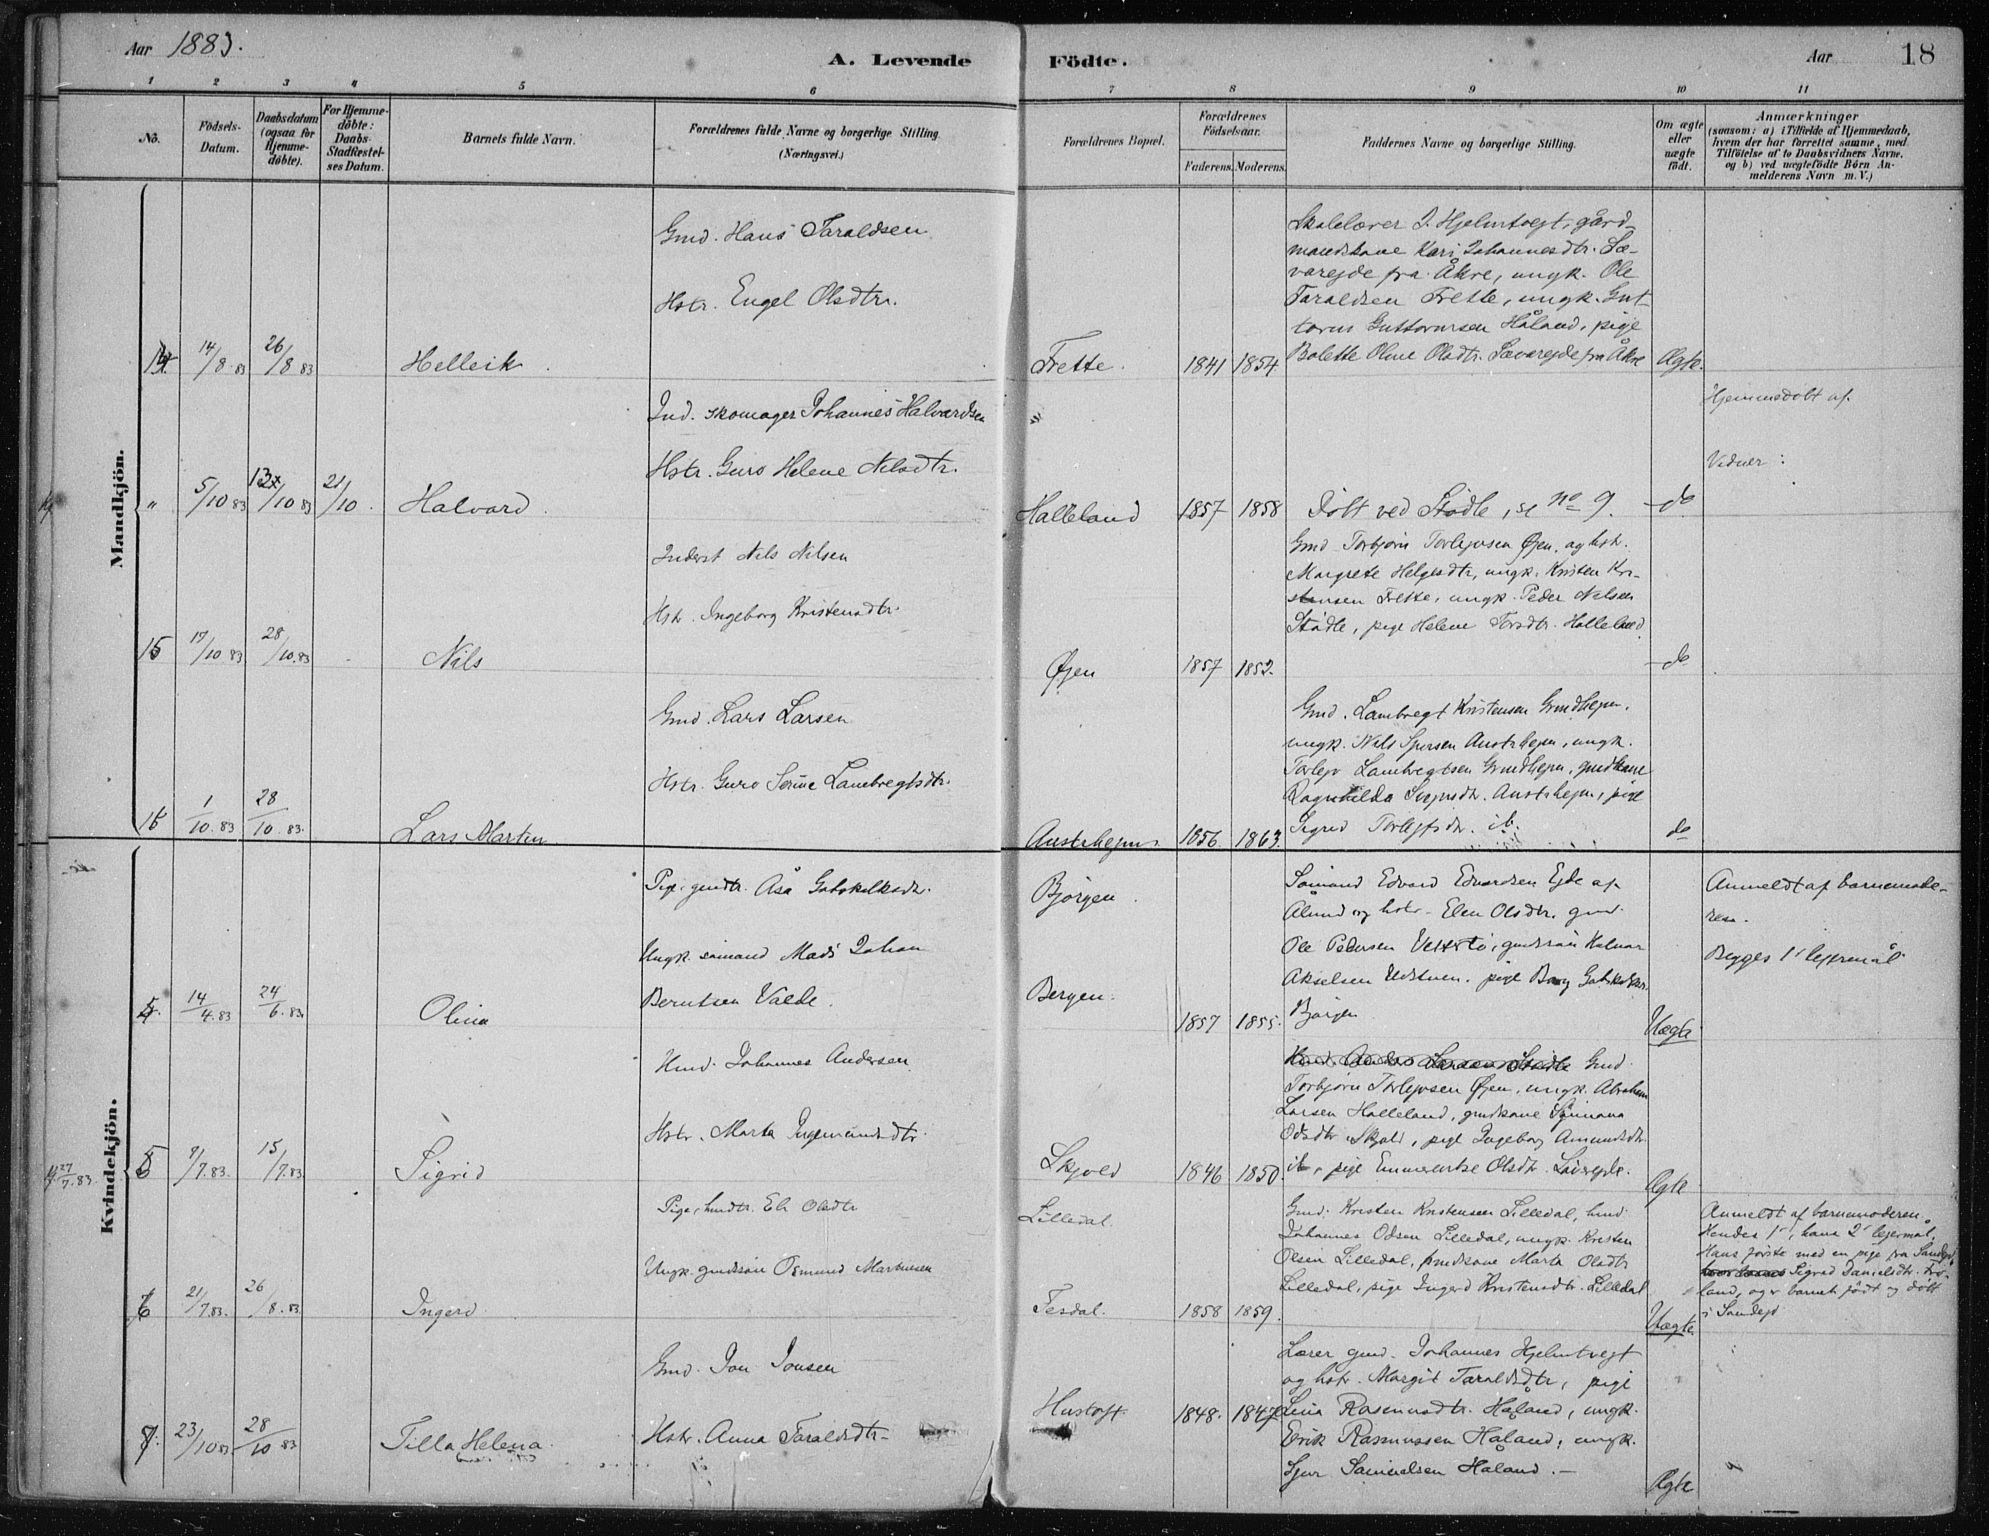 Aar 1883.
A. Levende Födte.
Aar 18
1 2 3 4 5 6 7 8 9 10 11
No.
Födsels-Datum.
Daabsdatum (ogsaa for Hjemme-döbte).
For Hjemme-döbte: Daabs-Stadfæstel-ses Datum.
Barnets fulde Navn.
Forældrenes fulde Navne og borgerlige Stilling. (Næringsvei.)
Forældrenes Bopæl.
Forældrenes Födselsaar.
Faderens. Moderens.
Faddernes Navne og borgerlige Stilling.
Om ægte eller uægte födt.
Anmærkninger
(saasom: a) i Tilfælde af Hjemmedaab, hvem der har forrettet samme, med Tilföielse af to Daabsvidners Navne, og b) ved uægtefödte Börn An-melderens Navn m. V.)
Mandkjön.
14 14/8 83 26/8 83 Helleik
Gmd. Hans Taraldsen
Hstr. Engel Olsdtr.
Frette. 1841 1854
Skolelærer J. Hjelmtvejt, gård-
mandskone Kari Johannesdtr. Sæ-
varejde fra Åkre, ungk. Ole
Taraldsen Frette, ungk. Gut-
torm Guttormsen Håland, pige
Bolette Oline Olsdtr. Sævarejde fra Åkre
Ægte.
" 5/10 83 /10 83 21/10. Halvard
Ind. skomager Johannes Halvardsen
Hstr. Guro Helene Nilsdtr.
Halleland 1857 1858
Döbt ved Stødle, se No 9.
do
Hjemmedöbt af
Vidner:
15 17/10 83 28/10.83 Nils
Inderst Nils Nilsen
Hstr. Ingeborg Kristensdtr.
Øjen 1857 1852.
Gmd. Torbjörn Torlejvsen Øjen, og hstr.
Margrete Helgesdtr, ungk. Kristen Kri-
stensen Frette, ungk. Peder Nilsen
Stødle, pige Helene Torsdtr. Halleland.
do
16 1/10.83 28/10.83. Lars Martin
Gmd. Lars Larsen
Hstr. Guro Serine Lambregtsdtr.
Austrhejm. 1856. 1863.
Gmd. Lambregt Kristensen Grindhejm,
ungk. Nils Austrhejm, ungk.
Torlejv Lambregtsen Grindhejm, gmdkone
Ragnhilda Austrhejm, pige
Sigrid ib.
do
Kvindekjön.
14/4.83 24/6.83. Olina
Pige, gmdtr. Åsa Gotskalksdtr.
Ungk. sömand Mads Johan
Berntsen Valde.
Bjørgen.
Bergen. 1857 1855.
Sömand Edvard Edvardsen Ejde af
Ølund og hstr. Elen Olsdtr. gmd.
Ole Pedersen
Akselsen pige
Bjørgen
Uægte
Anmeldt af barnemode-
ren.
Begges 1' lejermål
27/7.83. 9/7.83. 15/7.83. Sigrid
Hmd. Johannes Andersen
Hstr. Marta Ingemundsdtr.
Skjold 1846 1850.
Gmd.
Torbjörn Torlejvsen Øjen, ungk. Abraham
Larsen Halleland, gmdkone Synnana
Odsdtr. Skjold, pige Ingeborg Amundsdtr.
ib., pige Emmerentse Olsdtr.
Ægte
21/7.83. 26/8.83. Ingerd
Pige, hmdtr. Eli Olsdtr
Ungk. gmdssön Osmund Martinsen
Lilledal.
Tesdal. 1858 1859.
Gmd. Kristen Kristensen Lilledal, hmd.
Johannes Odsen Lilledal, ungk. Kristen
Olsen Lilledal, gmdkone Marta Olsdtr
Lilledal, pige Ingerd Kristensdtr. Lilledal
Uægte.
Anmeldt af barnemoderen.
Hendes 1', hans 2' lejermål.
Hans förste med en pige fra Sandejd,
Sigrid Danielsdtr. Trö-
land, og er barnet födt og döbt
i Sandejd
23/10 83 28/10 83 Tilla Helena.
Gmd. Jon Jonsen
Hstr. Anna Taraldsdtr
Hustoft 1848. 1847
Lærer gmd. Johannes Hjelmtvejt
og hstr. Margit Taraldsdtr, pige
Lina Rasmusdtr. Håland, ungk.
Erik Rasmussen Håland, ungk.
Sjur Samuelsen Håland.
Ægte